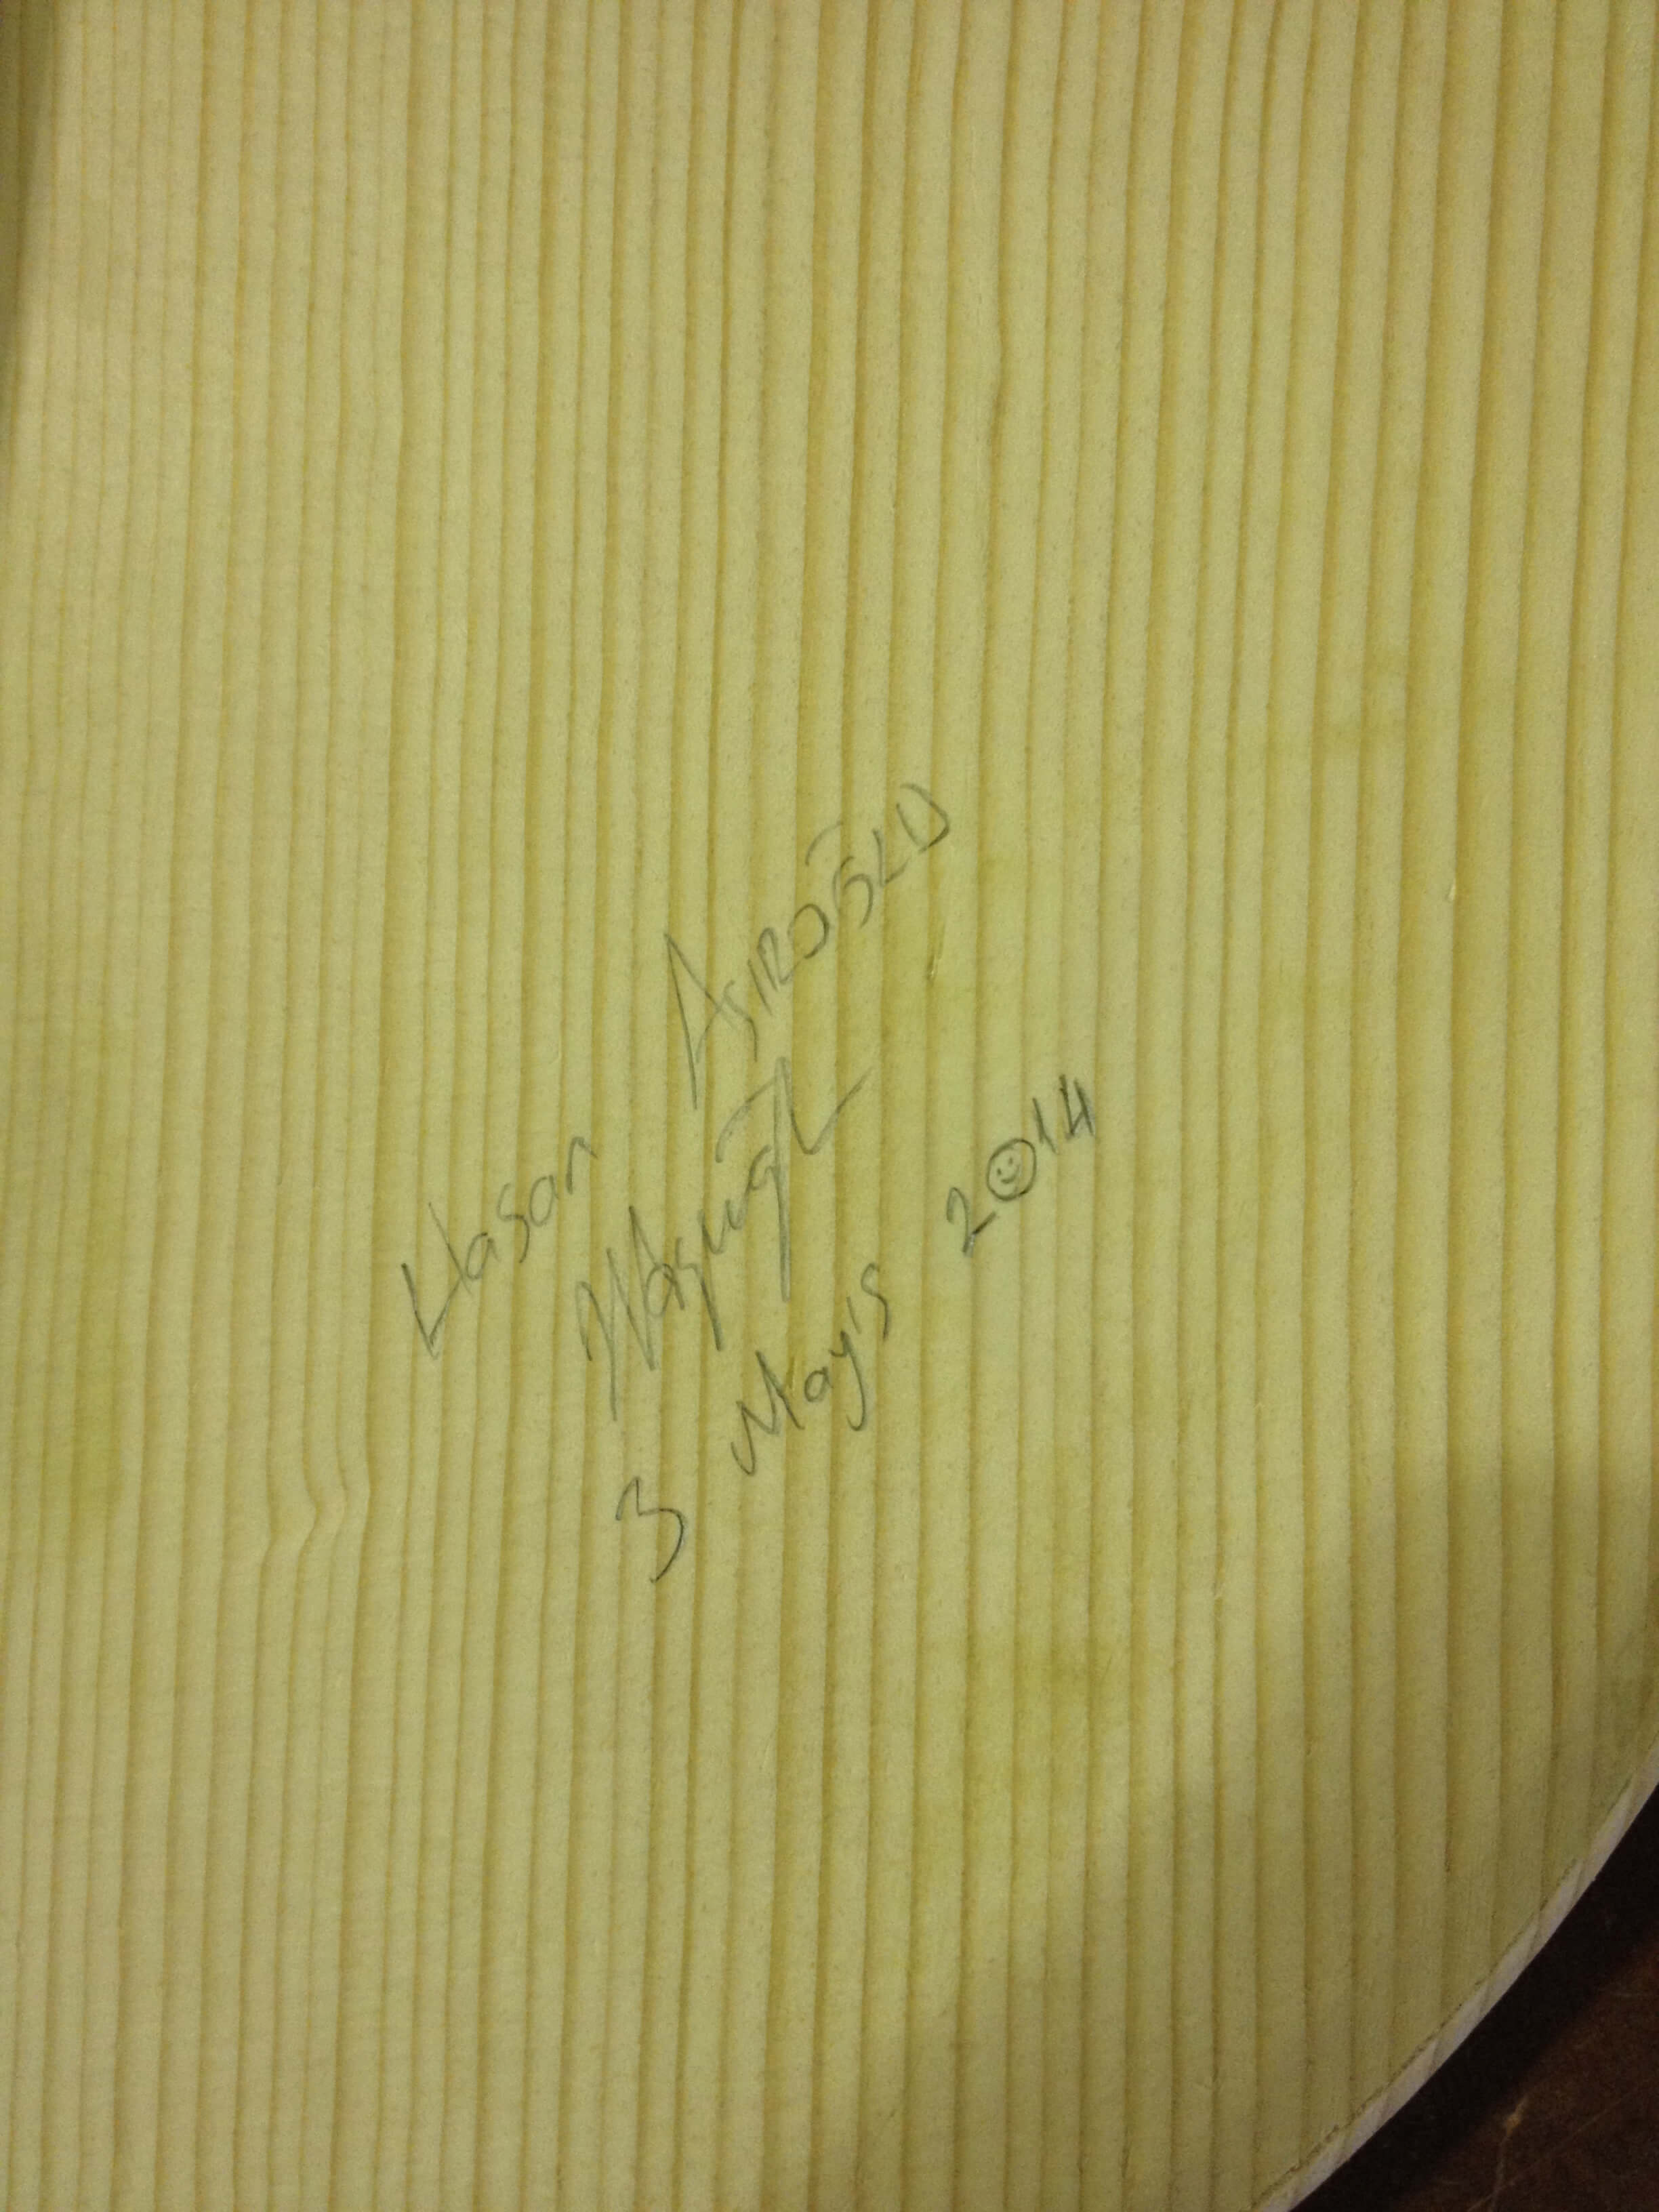 Hasan Asıroğlu
3 Mayıs 2014